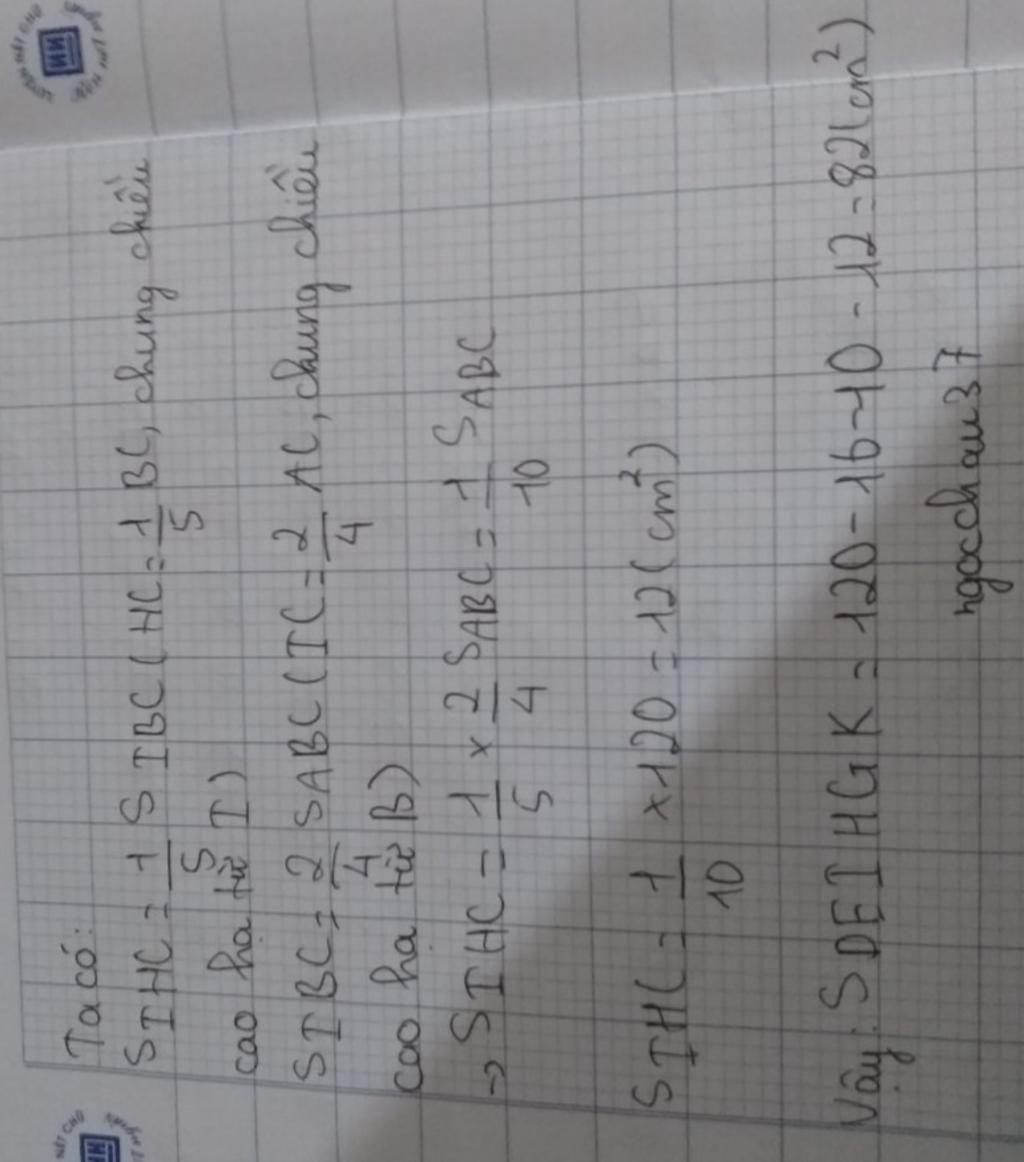 Ta có:
SIHC = 1/5 SIBC (HC = 1/5 BC, chung chiều
cao hạ từ I)
SIBC = 2/4 SABC (IC = 2/4 AC, chung chiều
cao hạ từ B)
→ SIHC = 1/5 × 2/4 SABC = 1/10 SABC
SIHC = 1/10 × 120 = 12 (cm²)
Vậy: SDEIHGK = 120 - 16 - 10 - 12 = 82 (cm²)
ngocchau37